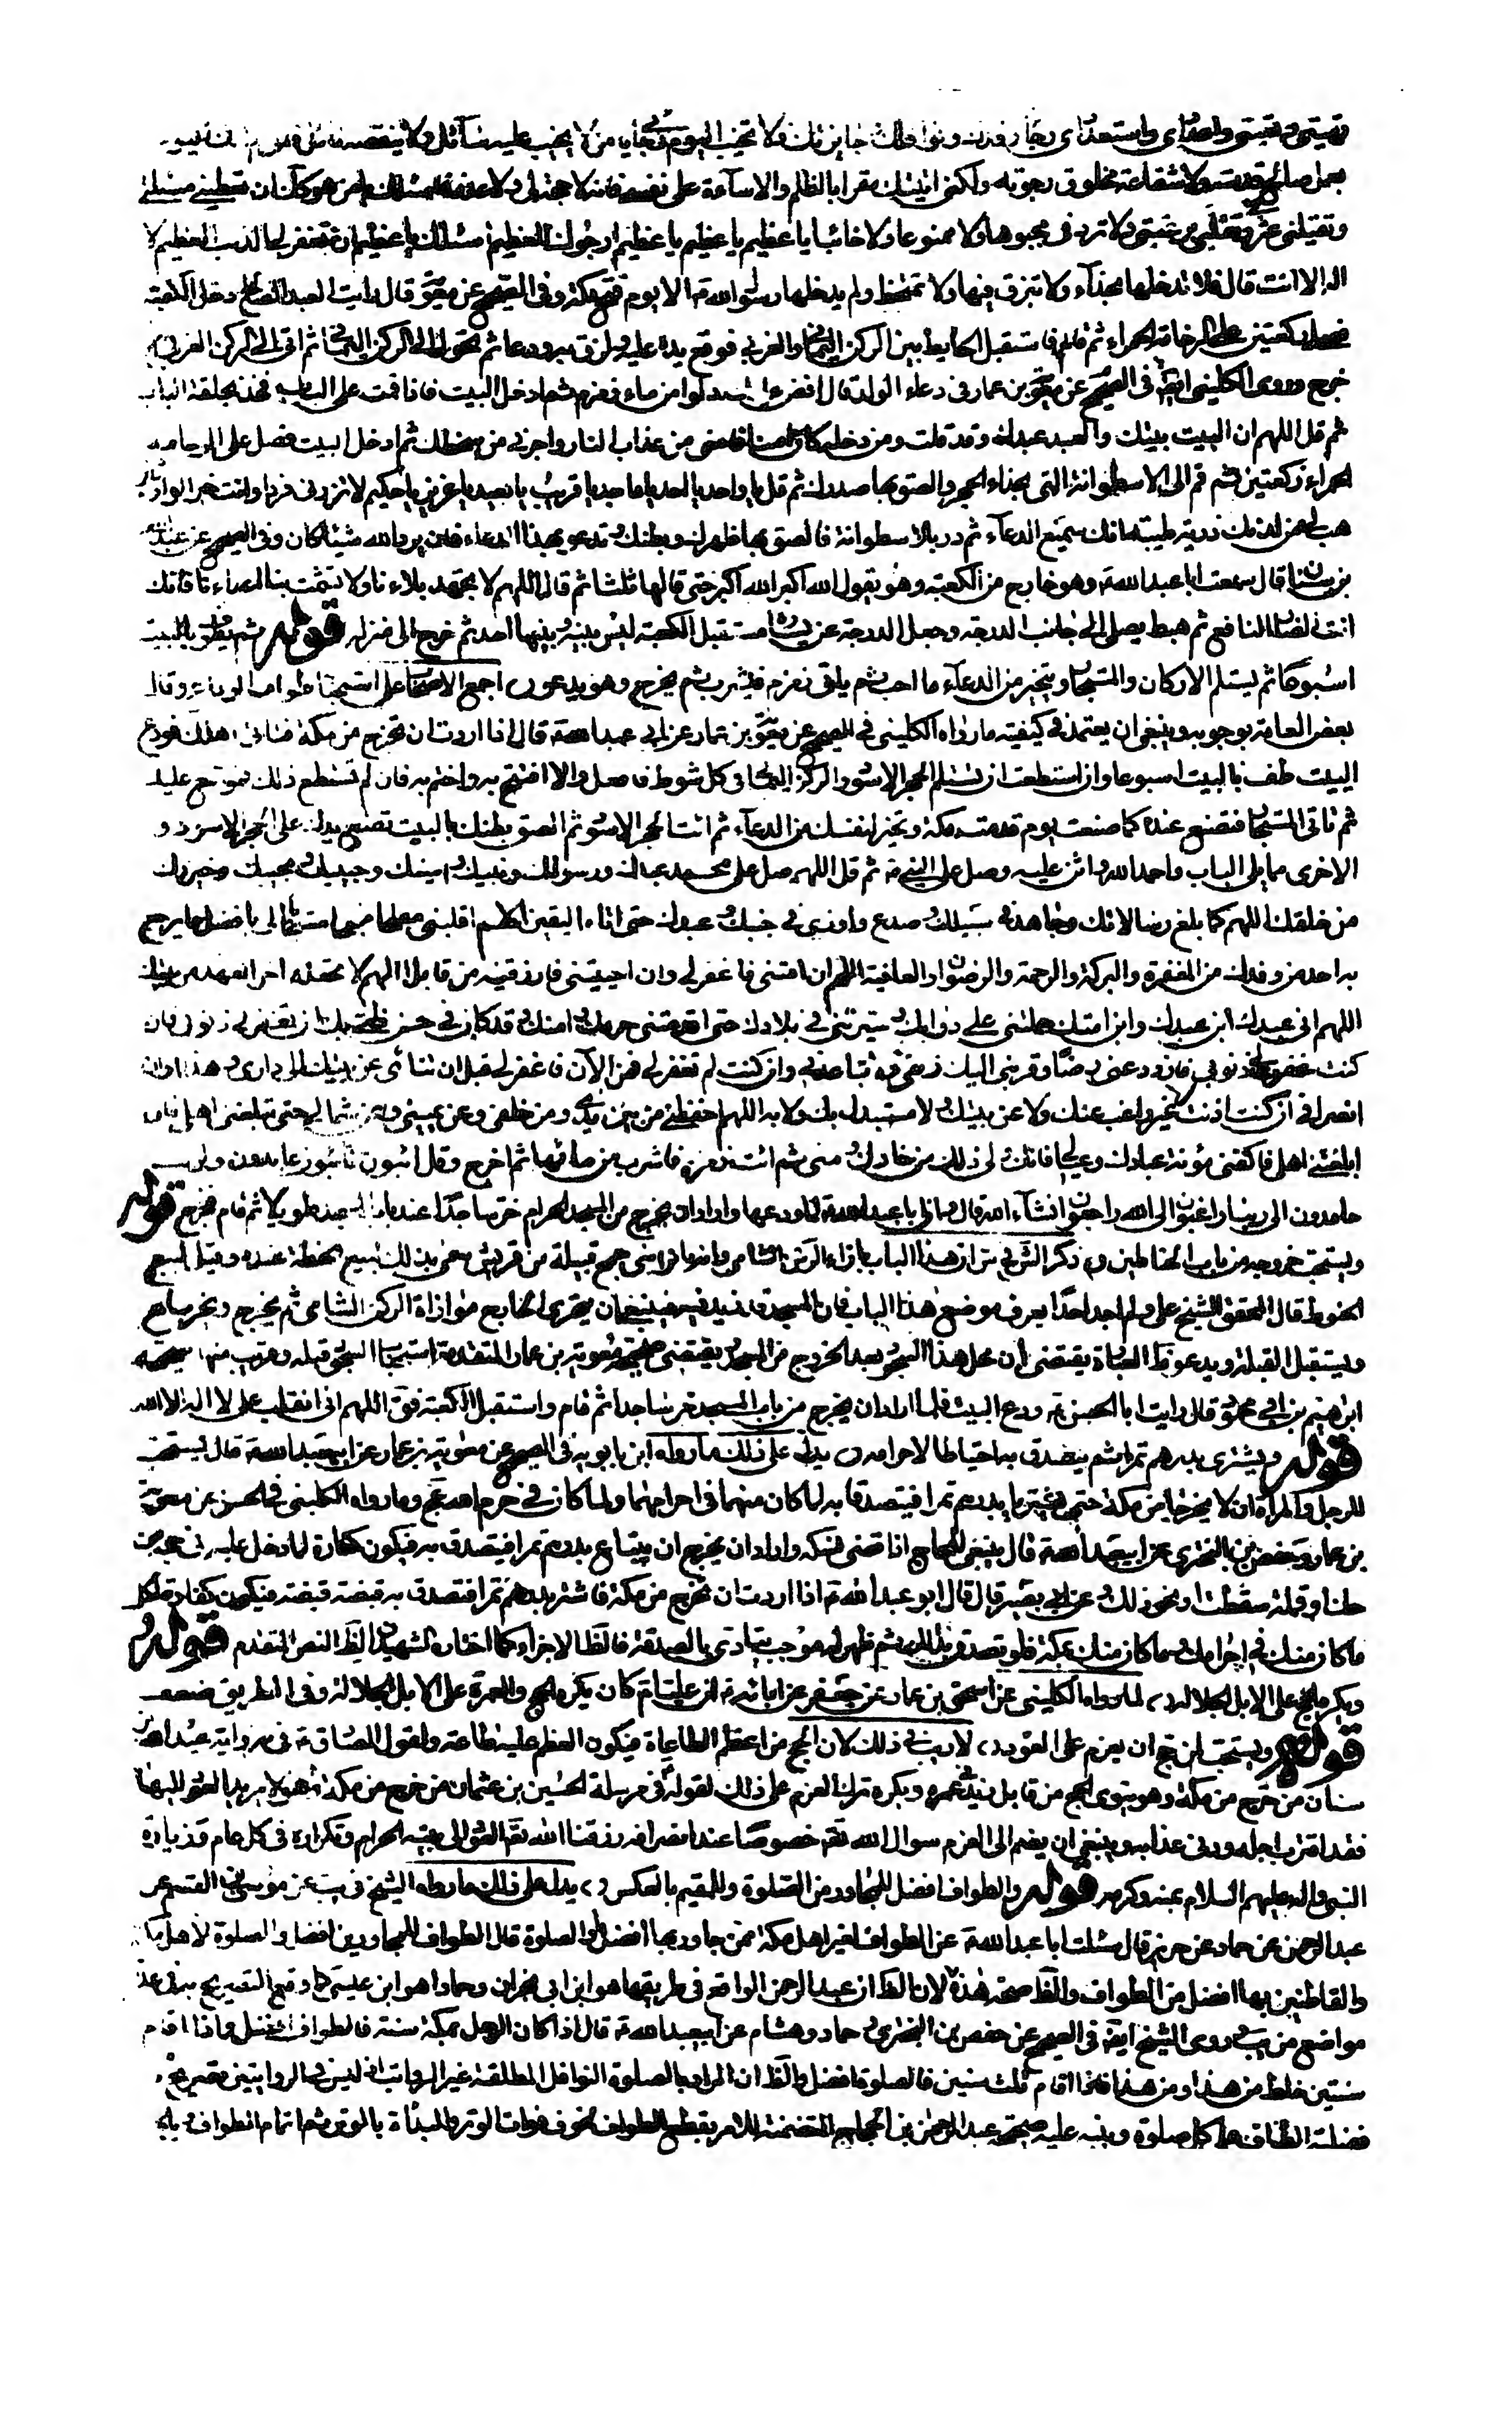 تهيئتي وتعبيتي واعدادي واستعدادي رجاء رفدك ونوافلك وجايزتك فلا تخيب اليوم رجائي يا من لا يخيب عليه سائل ولا ينقصه نائل فاني لم اتك اليوم
بعمل صالح قدمته ولا شفاعة مخلوق رجوته ولكني اتيتك مقرا بالظلم والاساءة على نفسي فانه لا حجة لي ولا عذر فاسئلك يا من هو كذلك ان تعطيني مسئلتي
وتقيلني عثرتي وتقلبني برغبتي ولا تردني مجبوها ولا ممنوعا ولا خائبا يا عظيم يا عظيم يا عظيم ارجوك للعظيم اسئلك يا عظيم ان تغفر لي الذنب العظيم لا
اله الا انت قال ولا تدخلها بحذاء ولا تبزق فيها ولا تمتخط ولم يدخلها رسول الله ص الا يوم فتح مكة وفي الصحيح عن معوية قال رايت العبد الصالح دخل الكعبة
فصلى ركعتين على الرخامة الحمراء ثم قام فاستقبل الحايط بين الركن اليماني والغربي فوقع يده عليه ولزق به ودعا ثم تحول الى الركن اليماني ثم اتى الركن الغربي ثم
خرج وروى الكليني ايضا في الصحيح عن معوية بن عمار في دعاء الولد قال افض عليك دلوا من ماء زمزم ثم ادخل البيت فاذا قمت على الباب فخذ بحلقة الباب
ثم قل اللهم ان البيت بيتك والعبد عبدك وقد قلت ومن دخله كان امنا فامني من عذاب النار واجرني من سخطك ثم ادخل البيت فصل على الرخامة
الحمراء ركعتين ثم قم الى الاسطوانة التي بحذاء الحجر والصق بها صدرك ثم قل يا واحد يا احد يا ماجد يا قريب يا بعيد يا عزيز يا حكيم لا تذرني فردا وانت خير الوارثين
هب لي من لدنك ذرية طيبة انك سميع الدعاء ثم در بالاسطوانة فالصق بها ظهرك وبطنك وتدعو بهذا الدعاء فان يرد الله شيئا كان وفي الصحيح عن عبد الله
بن سنان قال سمعت ابا عبد الله ع وهو خارج من الكعبة وهو يقول الله اكبر الله اكبر حتى قالها ثلثا ثم قال اللهم لا تجهد بلاءنا ولا تشمت بنا اعداءنا فانك
انت الضار النافع ثم هبط يصلي الى جانب الدرجة وجعل الدرجة عن يساره مستقبل الكعبة ليس بينه وبينها احد ثم خرج الى منزله قوله ثم يطوف بالبيت
اسبوعا ثم يستلم الاركان والمستجار ويتخير من الدعاء ما احب ثم ياتي زمزم فيشرب ثم يخرج وهو يدعو اجمع الاصحاب على استحباب طواف الوداع وقال
بعض العامة بوجوبه وينبغي ان يعتمد في كيفيته ما رواه الكليني في الصحيح عن معوية بن عمار عن ابي عبد الله ع قال اذا اردت ان تخرج من مكة فتاتي اهلك فودع
البيت طف بالبيت اسبوعا وان استطعت ان تستلم الحجر الاسود والركن اليماني في كل شوط فافعل والا فافتح به واختم به فان لم تستطع ذلك فموسع عليك
ثم تاتي المستجار فتصنع عنده كما صنعت يوم قدمت مكة وتخير لنفسك من الدعاء ثم ائت الحجر الاسود ثم الصق بطنك بالبيت تضع يدك على الحجر الاسود و
الاخرى مما يلي الباب واحمد الله واثن عليه وصل على النبي ص ثم قل اللهم صل على محمد عبدك ورسولك ونبيك وامينك وحبيبك ونجيبك وخيرتك
من خلقك اللهم كما بلغ رسالاتك وجاهد في سبيلك وصدع واوذي في جنبك وعبدك حتى اتاه اليقين اللهم اقلبني مفلحا منجحا مستجابا لي بافضل ما يرجع
به احد من وفدك من المغفرة والبركة والرحمة والرضوان والعافية اللهم ان امتني فاغفر لي وان احييتني فارزقنيه من قابل اللهم لا تجعله اخر العهد من بيتك
اللهم اني عبدك ابن عبدك وابن امتك حملتني على دوابك وسيرتني في بلادك حتى اقدمتني حرمك وامنك وقد كان في حسن ظني بك ان تغفر لي ذنوبي فان
كنت غفرت لي ذنوبي فازدد عني رضا وقربني اليك زلفى ولا تباعدني وان كنت لم تغفر لي فمن الآن فاغفر لي قبل ان تنأى عن بيتك داري وهذا اوان
انصرافي ان كنت اذنت لي غير راغب عنك ولا عن بيتك ولا مستبدل بك ولا به اللهم احفظني من بين يدي ومن خلفي وعن يميني وعن شمالي حتى تبلغني اهلي فاذا
ابلغتني اهلي فاكفني مؤنة عبادك وعيالي فانك ولي ذلك من خلقك ومني ثم ائت زمزم فاشرب من مائها ثم اخرج وقل ائبون تائبون عابدون لربنا
حامدون الى ربنا راغبون الى الله راجعون انشاء الله قال وان ابا عبد الله ع لما ودعها واراد ان يخرج من المسجد الحرام خر ساجدا عند باب المسجد طويلا ثم قام فخرج قوله
ويستحب خروجه من باب الحناطين ذكر الشهيد ان هذا الباب بازاء الركن الشامي وانه باب بني جمح قبيلة من قريش سمي بذلك لبيع الحنطة عنده وقيل لبيع
الحنوط قال المحقق الشيخ علي ولم اجد احدا يعرف موضع هذا الباب فان المسجد قد زيد فيه فينبغي ان يتحرى الخارج موازاة الركن الشامي ثم يخرج ويخر ساجدا
ويستقبل القبلة ويدعو ظاهر العبارة يقتضي ان محل هذا السجود بعد الخروج من المسجد ويقتضي صحيحة معوية بن عمار المتقدمة استحباب السجود قبله وقريب منها صحيحة
ابرهيم بن ابي محمود قال رايت ابا الحسن ع ودع البيت فلما اراد ان يخرج من باب المسجد خر ساجدا ثم قام واستقبل الكعبة فق اللهم اني انقلب على لا اله الا الله
قوله ويشتري بدرهم تمرا ثم يتصدق به احتياطا لاحرامه يدل على ذلك ما رواه ابن بابويه في الصحيح عن معوية بن عمار عن ابي عبد الله ع قال يستحب
للرجل والمرأة ان لا يخرجا من مكة حتى يشتريا بدرهم تمرا فيتصدقا به لما كان منهما في احرامهما ولما كان في حرم الله عج وما رواه الكليني في الحسن عن معوية
بن عمار وحفص بن البختري عن ابي عبد الله ع قال ينبغي للحاج اذا قضى نسكه واراد ان يخرج ان يبتاع بدرهم تمرا فيتصدق به فيكون كفارة لما دخل عليه في حجه من
حك او قملة سقطت او نحو ذلك وعن ابي بصير قال قال ابو عبد الله ع اذا اردت ان تخرج من مكة فاشتر بدرهم تمرا فتصدق به قبضة قبضة فيكون كفارة لكل
ما كان منك في احرامك وما كان منك بمكة فلو تصدق بذلك ثم ظهر له موجب يتادى بالصدقة فالظ الاجزاء كما اختاره الشهيدان لظ النص المتقدم قوله
ويكره الحج على الابل الجلالة لما رواه الكليني عن اسحق بن عمار عن جعفر عن ابائه ع ان عليا ع كان يكره الحج والعمرة على الابل الجلالة وفي الطريق ضعف
قوله ويستحب لمن حج ان يعزم على العود لا ريب في ذلك لان الحج من اعظم الطاعات فيكون العزم عليه طاعة ولقول الصادق ع في رواية عبد الله بن
سنان من خرج من مكة وهو ينوي الحج من قابل زيد في عمره ويكره ترك العزم على ذلك لقوله في مرسلة الحسين بن عثمان من خرج من مكة وهو لا يريد العود اليها
فقد اقترب اجله ودنى عذابه وينبغي ان يضم الى العزم سوال الله تعم خصوصا عند انصرافه رزقنا الله تعم العود الى بيته الحرام وتكراره في كل عام وزيارة
النبي واله عليهم السلام بمنه وكرمه قوله والطواف افضل للمجاور من الصلوة وللمقيم بالعكس يدل على ذلك ما رواه الشيخ في يب عن موسى بن القسم عن
عبد الرحمن عن حماد عن حريز قال سئلت ابا عبد الله ع عن الطواف لغير اهل مكة ممن جاور بها افضل او الصلوة قال الطواف للمجاورين افضل والصلوة لاهل مكة
والقاطنين بها افضل من الطواف والظ صحة هذه لان الظ ان عبد الرحمن الواقع في طريقها هو ابن ابي نجران وحمادا هو ابن عيسى كما وقع التصريح به في عدة
مواضع من يب وروى الشيخ ايضا في الصحيح عن حفص بن البختري وحماد وهشام عن ابي عبد الله ع قال اذا كان الرجل بمكة سنة فالطواف افضل واذا اقام
سنتين خلط من هذا ومن هذا فاذا اقام ثلث سنين فالصلوة افضل والظ ان المراد بالصلوة النوافل المطلقة غير الرواتب اذ ليس في الروايتين تصريح
فضلية الطواف على كل صلوة وينبه عليه صحيحة عبد الرحمن بن الحجاج المتضمنة للامر بقطع الطواف لخوف فوات الوتر والبدأة بالوتر ثم اتمام الطواف